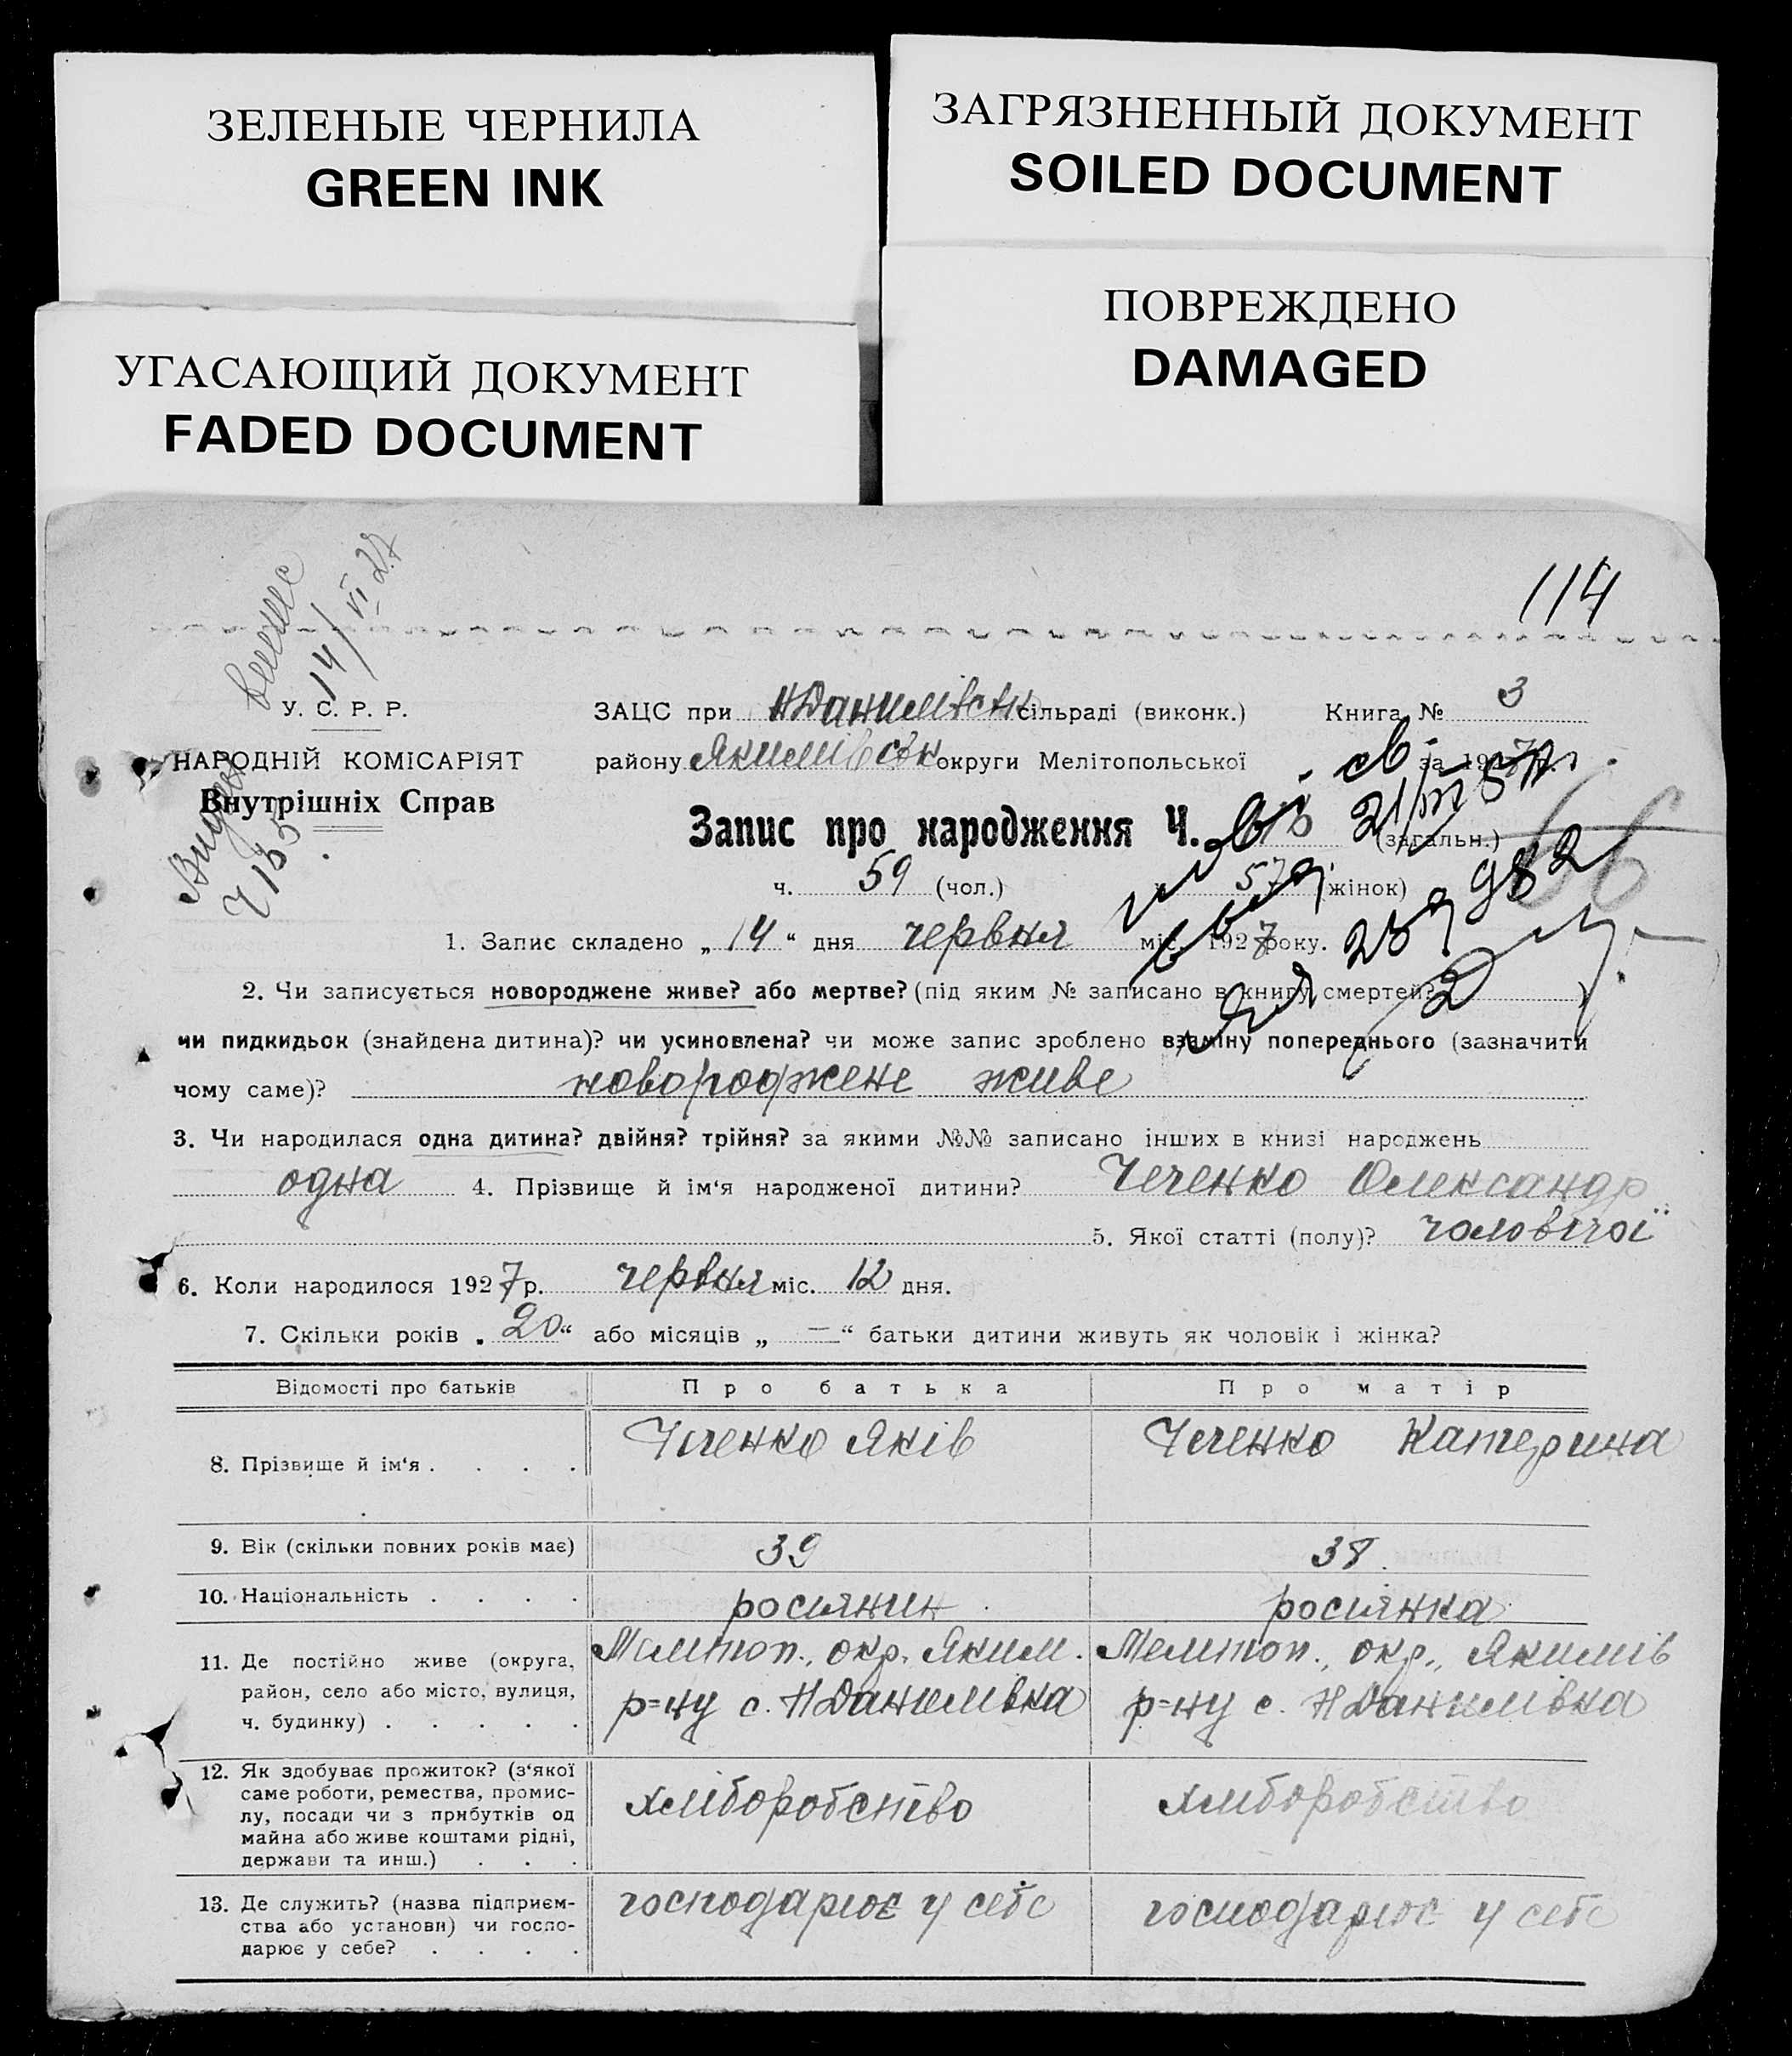 ЗЕЛЕНЫЕ ЧЕРНИЛА
GREEN INK
ЗАГРЯЗНЕННЫЙ ДОКУМЕНТ
SOILED DOCUMENT
УГАСАЮЩИЙ ДОКУМЕНТ
FADED DOCUMENT
ПОВРЕЖДЕНО
DAMAGED
114
14/VI 27
У. С. Р. Р.
НАРОДНІЙ КОМІСАРІЯТ
Внутрішніх Справ
ЗАЦС при НДанилівськ сільраді (виконк.) Книга № 3
району Якимівськ округи Мелітопольської за 1927 р.
Запис про народження Ч. (загальн.)
ч. 59 (чол.) 57 (жінок)
1. Запис складено „14“ дня червня міс. 1927 року.
2. Чи записується новороджене живе? або мертве? (під яким № записано в книгу смертей? )
чи пидкидьок (знайдена дитина)? чи усиновлена? чи може запис зроблено взаміну попереднього (зазначити
чому саме)? новороджене живе
3. Чи народилася одна дитина? двійня? трійня? за якими №№ записано інших в книзі народжень
одна 4. Прізвище й ім‘я народженої дитини? Чеченко Олександр
5. Якої статті (полу)? чоловічої
6. Коли народилося 1927 р. червня міс. 12 дня.
7. Скільки років „20“ або місяців „—“ батьки дитини живуть як чоловік і жінка?
Відомості про батьків Про батька Про матір
8. Прізвище й ім‘я . . . . Чеченко Яків Чеченко Катерина
9. Вік (скільки повних років має) 39 38.
10. Національність . . . . росіянин росіянка
11. Де постійно живе (округа,
район, село або місто, вулиця,
ч. будинку) . . . . .
Мелітоп., окр. Яким.
р=ну с. НДанилівка
Мелітоп., окр., Якимів
р=ну с. НДанилівка
12. Як здобуває прожиток? (з‘якої
саме роботи, ремества, промис-
лу, посади чи з прибутків од
майна або живе коштами рідні,
держави та инш.) . . .
хліборобство
хліборобство
13. Де служить? (назва підприєм-
ства або установи) чи госпо-
дарює у себе? . . . .
господарює у себе
господарює у себе